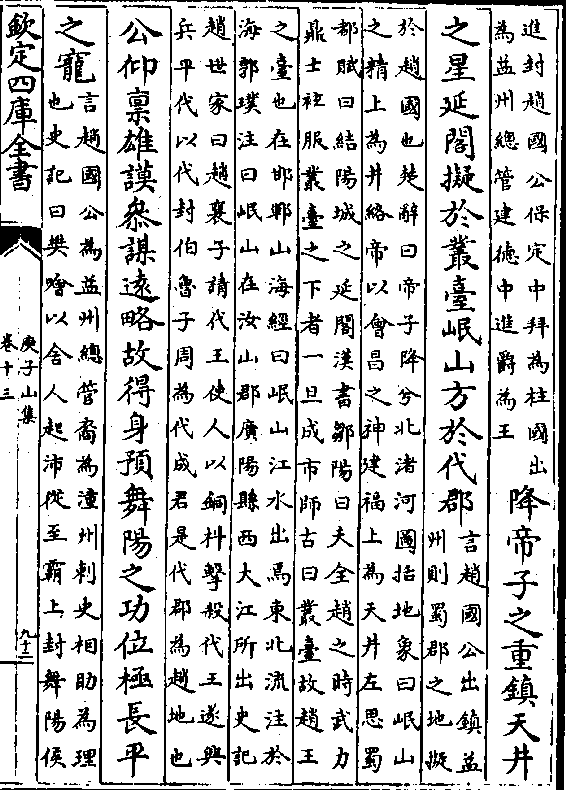 進封趙國公保定中拜為柱國出
為益州總管建德中進爵為王
降帝子之重鎮天井
之星延閣擬於叢臺岷山方於代郡
言趙國公出鎮益
州則蜀郡之地擬
於趙國也楚辭曰帝子降兮北渚河圖括地象曰岷山
之精上為井絡帝以會昌之神建福上為天井左思蜀
都賦曰結陽城之延閣漢書鄒陽曰夫全趙之時武力
鼎士袨服叢臺之下者一旦成市師古曰叢臺故趙王
之臺也在邯鄲山海經曰岷山江水出焉東北流注於
海郭璞注曰岷山在汶山郡廣陽縣西大江所出史記
趙世家曰趙襄子請代王使人以銅枓擊殺代王遂興
兵平代以代封伯魯子周為代成君是代郡為趙地也
公仰稟雄謨叅謀遠略故得身預舞陽之功位極長平
之寵
言趙國公為益州總管裔為潼州刺史相助為理
也史記曰樊噲以舍人起沛從至霸上封舞陽侯
欽定四庫全書
庾子山集
卷十三
九十二